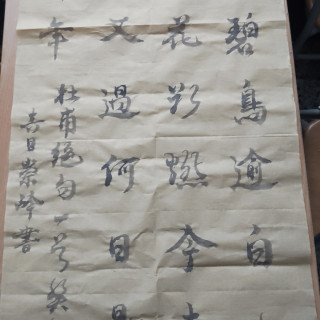 碧鳥逾白
花欲燃今
又過何日是
年
杜甫絕句一首癸
吉日崇岭書